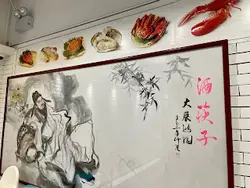 酒筷子
大展鸿图